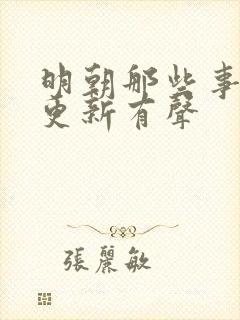 明朝那些事
更新有聲
張麗敏